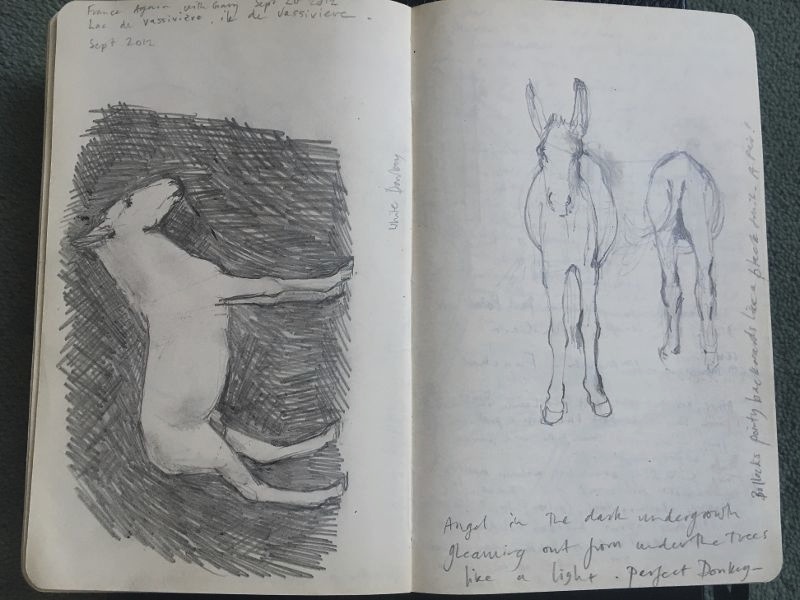 France Again with Gary Sept 20 2012
Lac de Vassivière. ile de Vassiviere.
Sept 2012
White Donkey
Bollocks pointy backwards like a pig
Angel in the dark undergrowth
gleaming out from under the trees
like a light. perfect Donkey